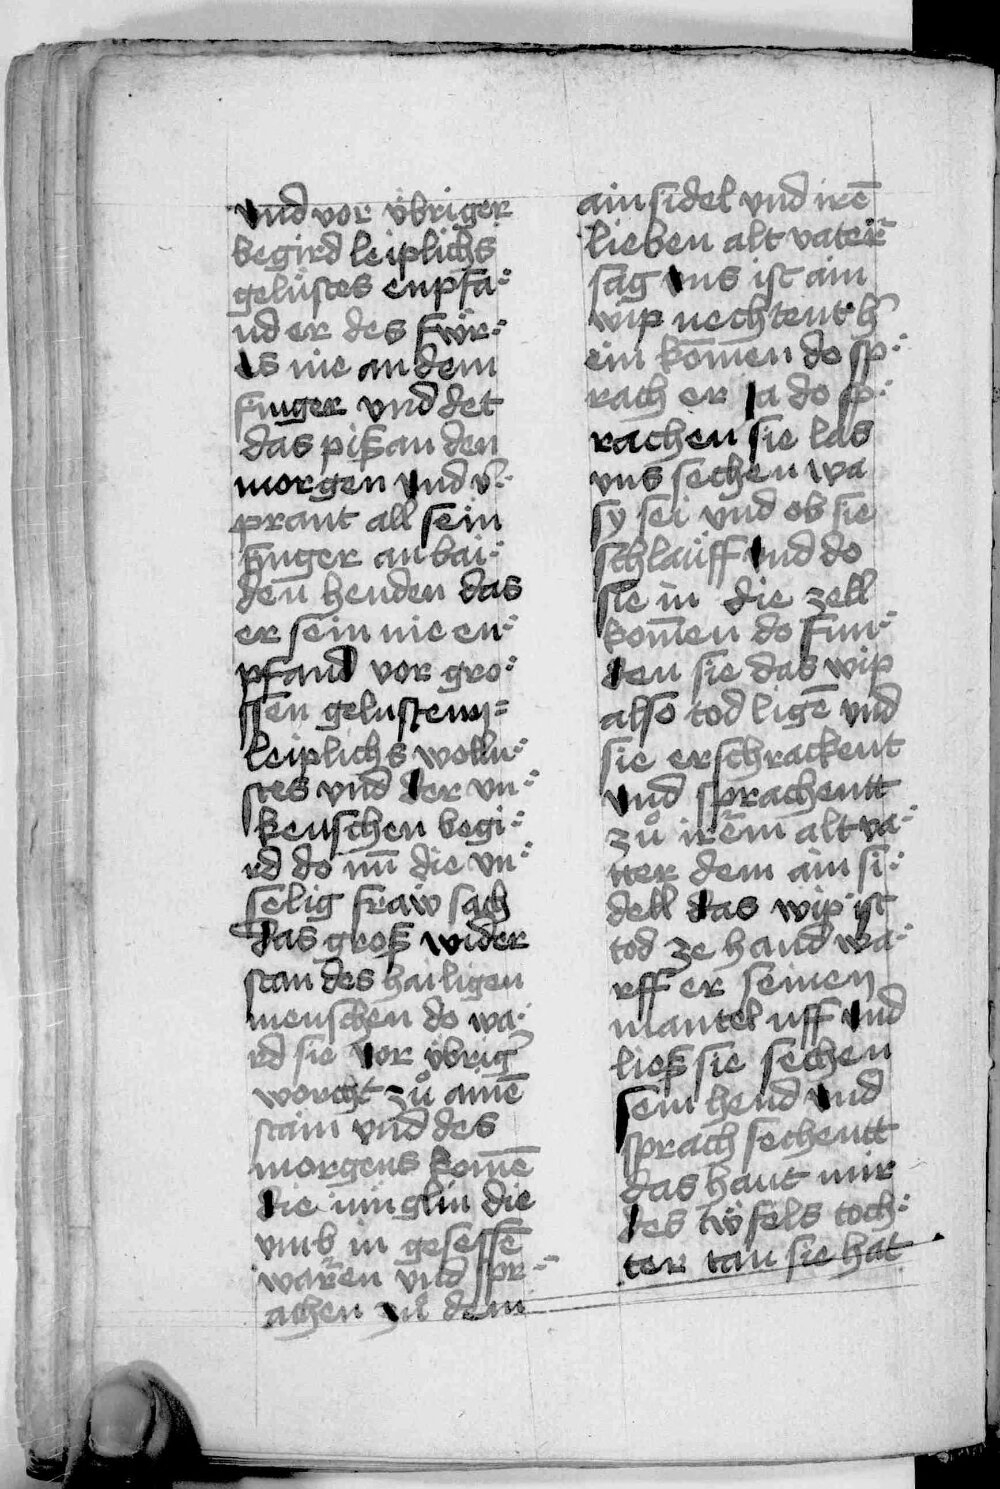 vnd vor v̈briger
begird leiplichs
gelústes enpfa⸗
nd er des fẅr⸗
es nie an dem
finger vnd det
das piß an den
morgen vnd v̾⸗
prant all sein
finger an bai⸗
den henden das
er sein nie en⸗
pfand vor gro⸗
ssen gelusten⸗
leiplichs wollu⸗
stes vnd der vn⸗
keuschen begi⸗
rd do nun̄ die vn⸗
selig fraw sach
das groß wider
stan des hailigen
menschen do wa⸗
rd sie vor v̈brig̾
worcht zů ainē
stain vnd des
morgens komē
die iünglin die
vmb in gesessē
waren vnd spr⸗
achen zů dem
ainsidel vnd irē
lieben alt vater
sag vns ist ain
wip nechtent h̾
ein komen do sp⸗
rach er ja do sp⸗
rachen sie las
vns sechen wa
sy sei vnd ob sie
schlauff vnd do
sie in die zell
komen do fun⸗
den sie das wip
also tod ligē vnd
sie erschrackent
vnd sprachentt
zů irem alt va⸗
tter dem ain si⸗
dell das wip ist
tod ze hand wa⸗
rff er seinen
mantel uff vnd
ließ sie sechen
sein hend vnd
sprach sechentt
das haut mir
des tẅfels toch⸗
ter tan sie hat